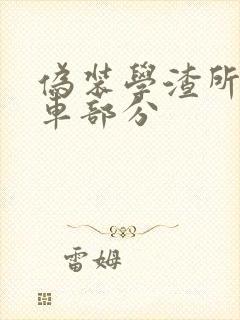 偽裝學渣所
車部分
雷姆